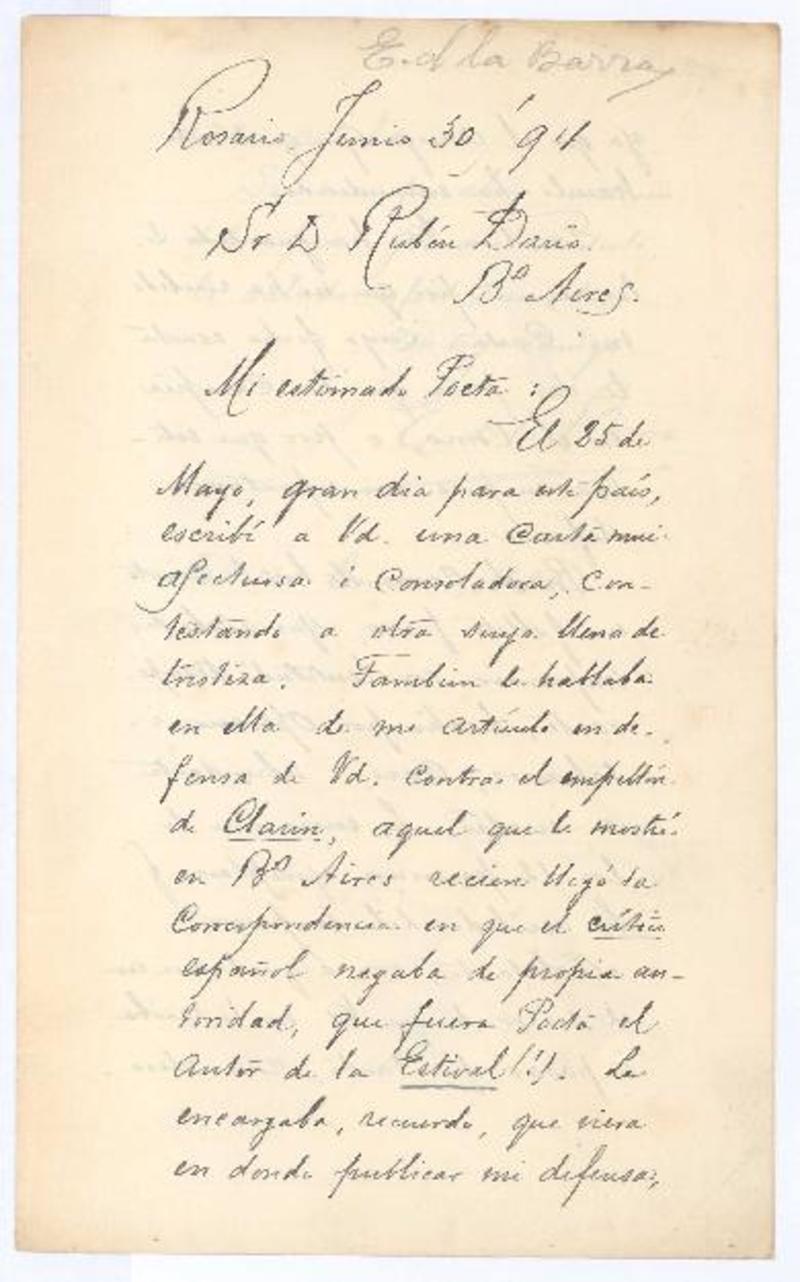 E. d la Barra
Rosario, Junio 30 '94
Sr D. Rubén Darío.
Bs Aires.
Mi estimado Poeta :
El 25 de
Mayo, gran dia para este país,
escribí a Vd. una Carta mui
afectuosa i Consoladora, Con-
testando a otra suya llena de
tristeza. Tambien le hablaba
en ella de mi Artículo en de-
fensa de Vd. Contra el empellón
de Clarin, aquel que le mostré
en Bs Aires recien llegó la
Correspondencia en que el crítico
español negaba de propia au-
toridad, que fuera Poeta el
Autor de la Estival (!). Le
encargaba, recuerdo, que viera
en donde publicar mi defensa,